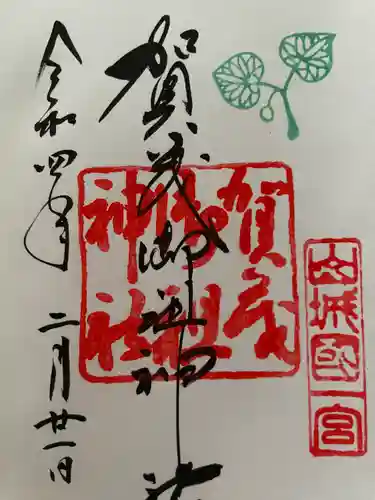 山城國一宮
賀茂御祖神社
賀茂御祖神社
令和四年 二月廿一日